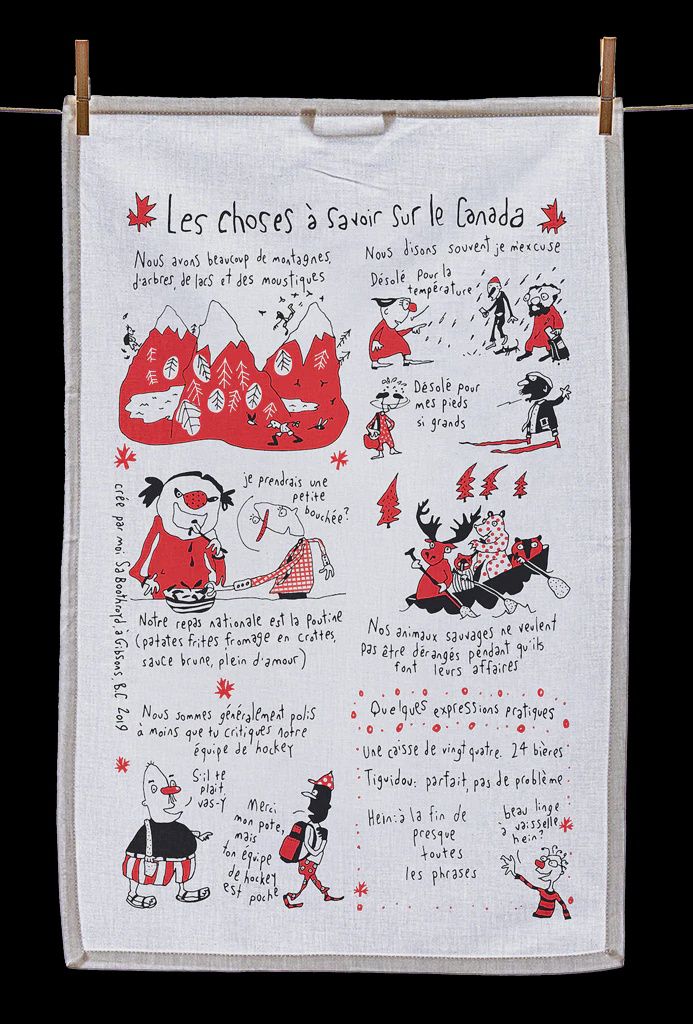 Les choses à savoir sur le Canada
Nous avons beaucoup de montagnes,
d'arbres, de lacs et des moustiques
Nous disons souvent je m'excuse
Désolé pour la
température
Désolé pour
mes pieds
si grands
je prendrais une
petite
bouchée?
Notre repas nationale est la poutine
(patates frites fromage en crottes,
sauce brune, plein d'amour)
Nos animaux sauvages ne veulent
pas être dérangés pendant qu'ils
font leurs affaires
crée par moi Sa Boothroyd, à Gibsons, B.C 2019
Nous sommes généralement polis
à moins que tu critiques notre
équipe de hockey
S'il te
plait,
vas-y
Merci
mon pote,
mais
ton équipe
de hockey
est poche
Quelques expressions pratiques
Une caisse de vingt quatre: 24 bières
Tiguidou: parfait, pas de problème
Hein: à la fin de
presque
toutes
les phrases
beau linge
à vaisselle,
hein?